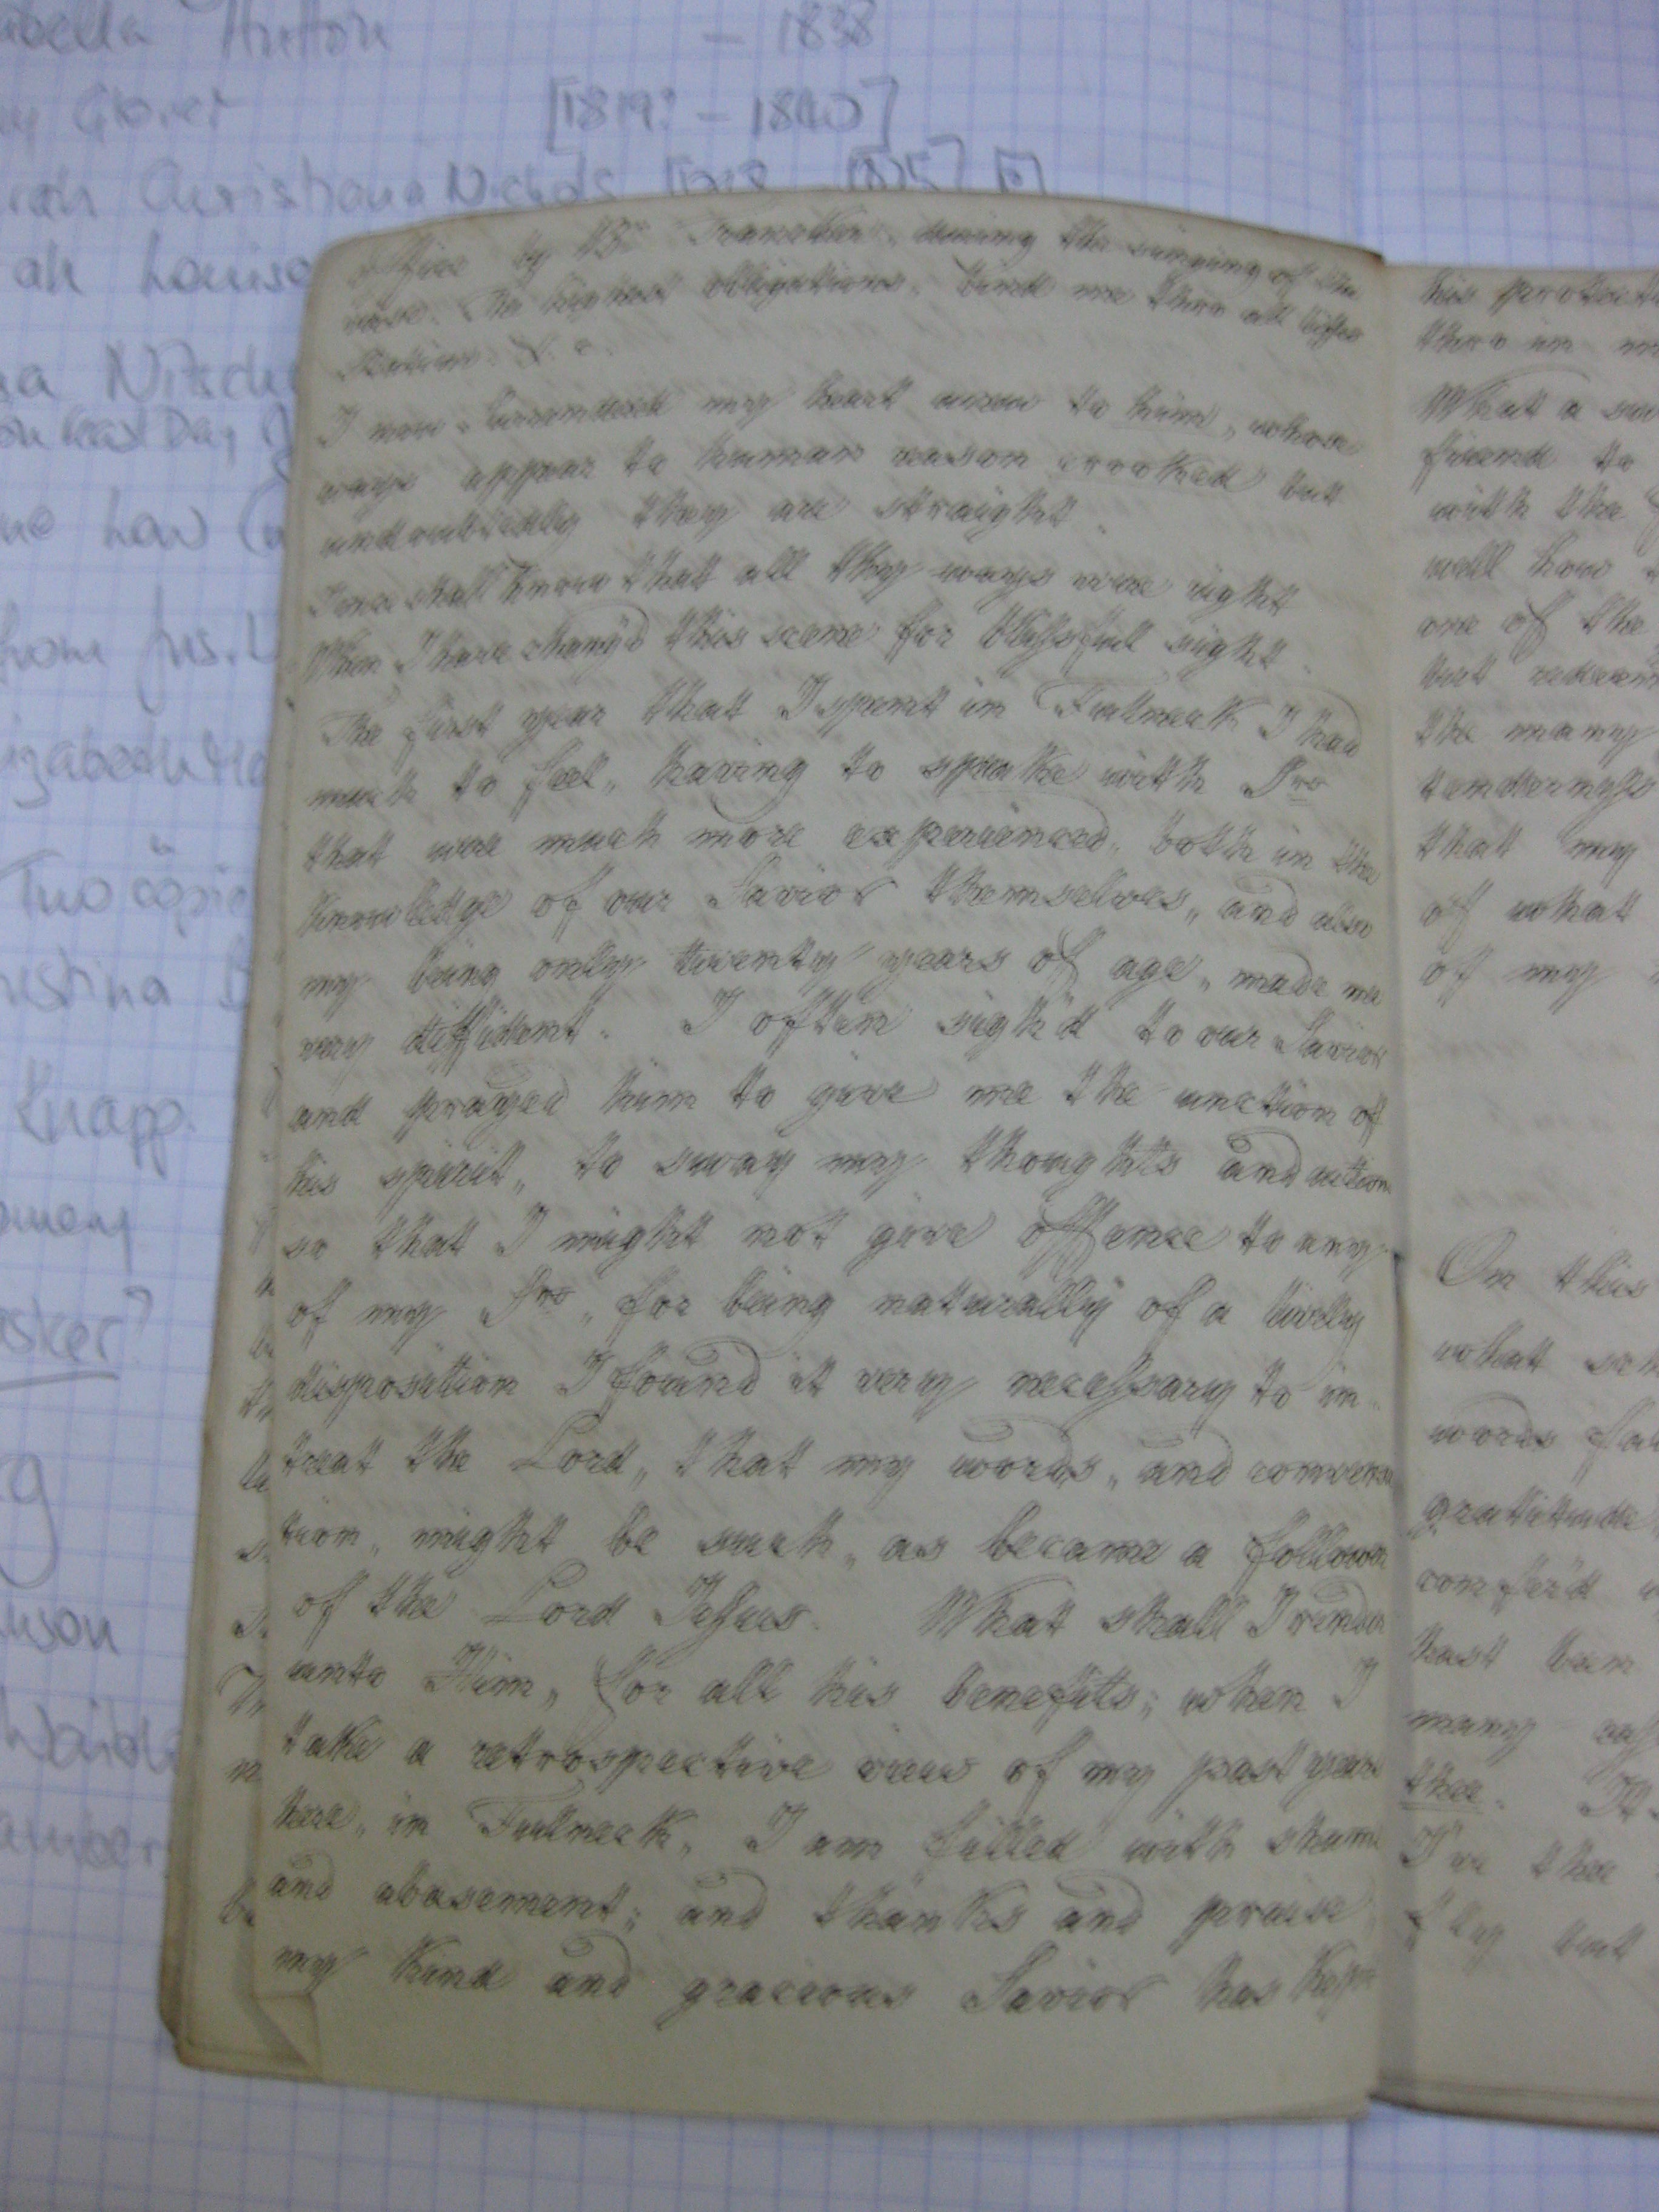 abella Hutton – 1838
Glover [1819? – 1840]
Christiana Nichols
ah Louisa
Nitsch
Day
from Jus. L
Two copies
Knapp.
asker?
office by Br. during the singing of the
verse. The highest obligations, bind me there all
I now surrendered my heart anew to him, whose
ways appear to human reason crooked but
undoubtedly they are straight.
I once shall know that all thy ways were right
When I have chang'd this scene for blissful sight.
The first year that I spent in Fulneck I had
much to feel, having to speake with Srs
that were much more experienced, both in the
knowledge of our Savior themselves, and also
my being only twenty years of age, made me
very diffident. I often sigh'd to our Savior
and prayed him to give me the unction of
his spirit, to sway my thoughts and action
so that I might not give offence to any
of my Srs, for being naturally of a lively
disposition I found it very necessary to in„
treat the Lord, that my words, and conversa
tion, might be such, as became a follower
of the Lord Jesus. What shall I render
unto Him, for all his benefits; when I
take a retrospective view of my past years
here, in Fulneck, I am filled with shame
and abasement; and thanks and praise
my kind and gracious Savior has kept
his protect
there in
What a
friend to
with the
well how
one of the
but redeem
the many
tenderness
that my
of what
of my
On this
what
words
gratitude
confer'd
hast been
many
thee.
I've thee
but